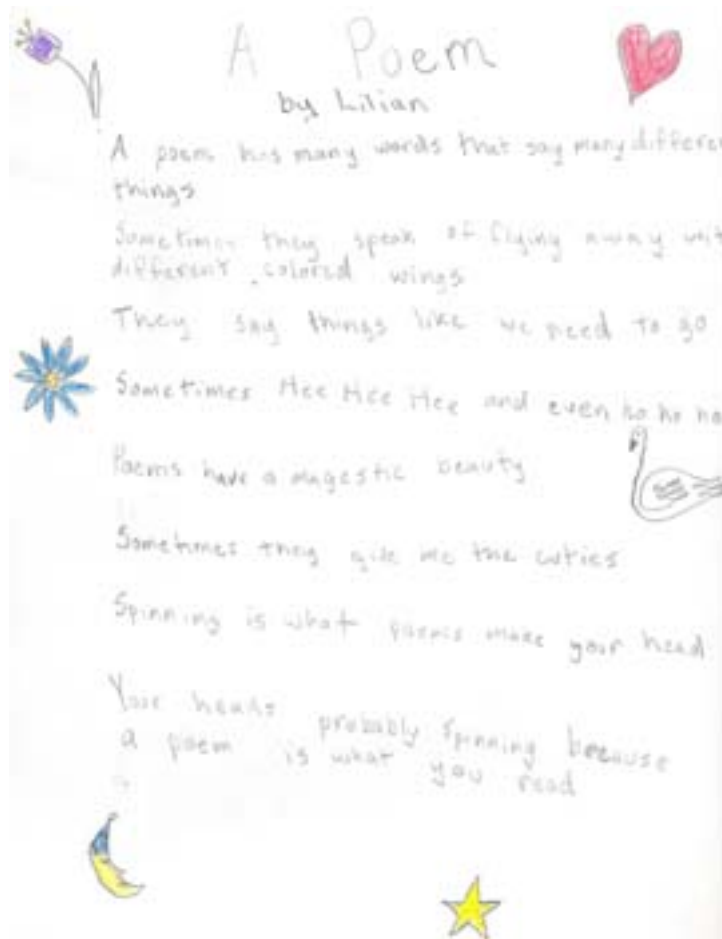 A Poem
by Lilian
A poem has many words that say many differen
things
Sometimes they speak of flying away wit
different colored wings
They say things like we need to go
Sometimes Hee Hee Hee and even ho ho ho
Poems have a magestic beauty
Sometimes they give me the cuties
Spinning is what poems make your head
Your heads probably spinning because
a poem is what you read